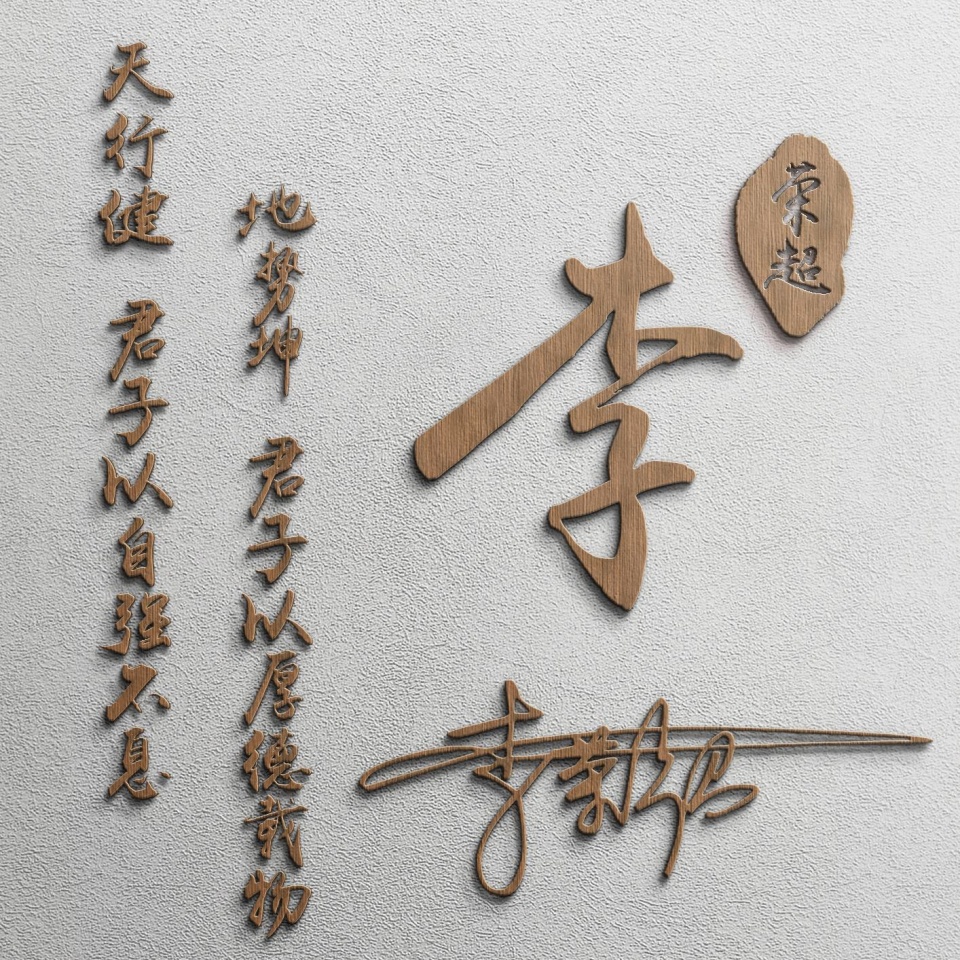 天行健 君子以自强不息
地势坤 君子以厚德载物
李
荣超
李荣超